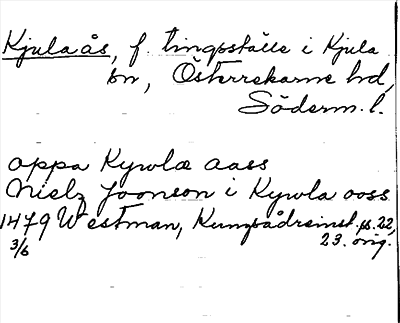 Kjulaås, f. tingsställe i Kjula
sn, Österrekarne hd,
Söderm. l.
oppa Kywlæ aass
Nielz Joonson i Kywla aass
1479 Westman, Kungsådreinst. ps. 22,
3/6 23. orig.